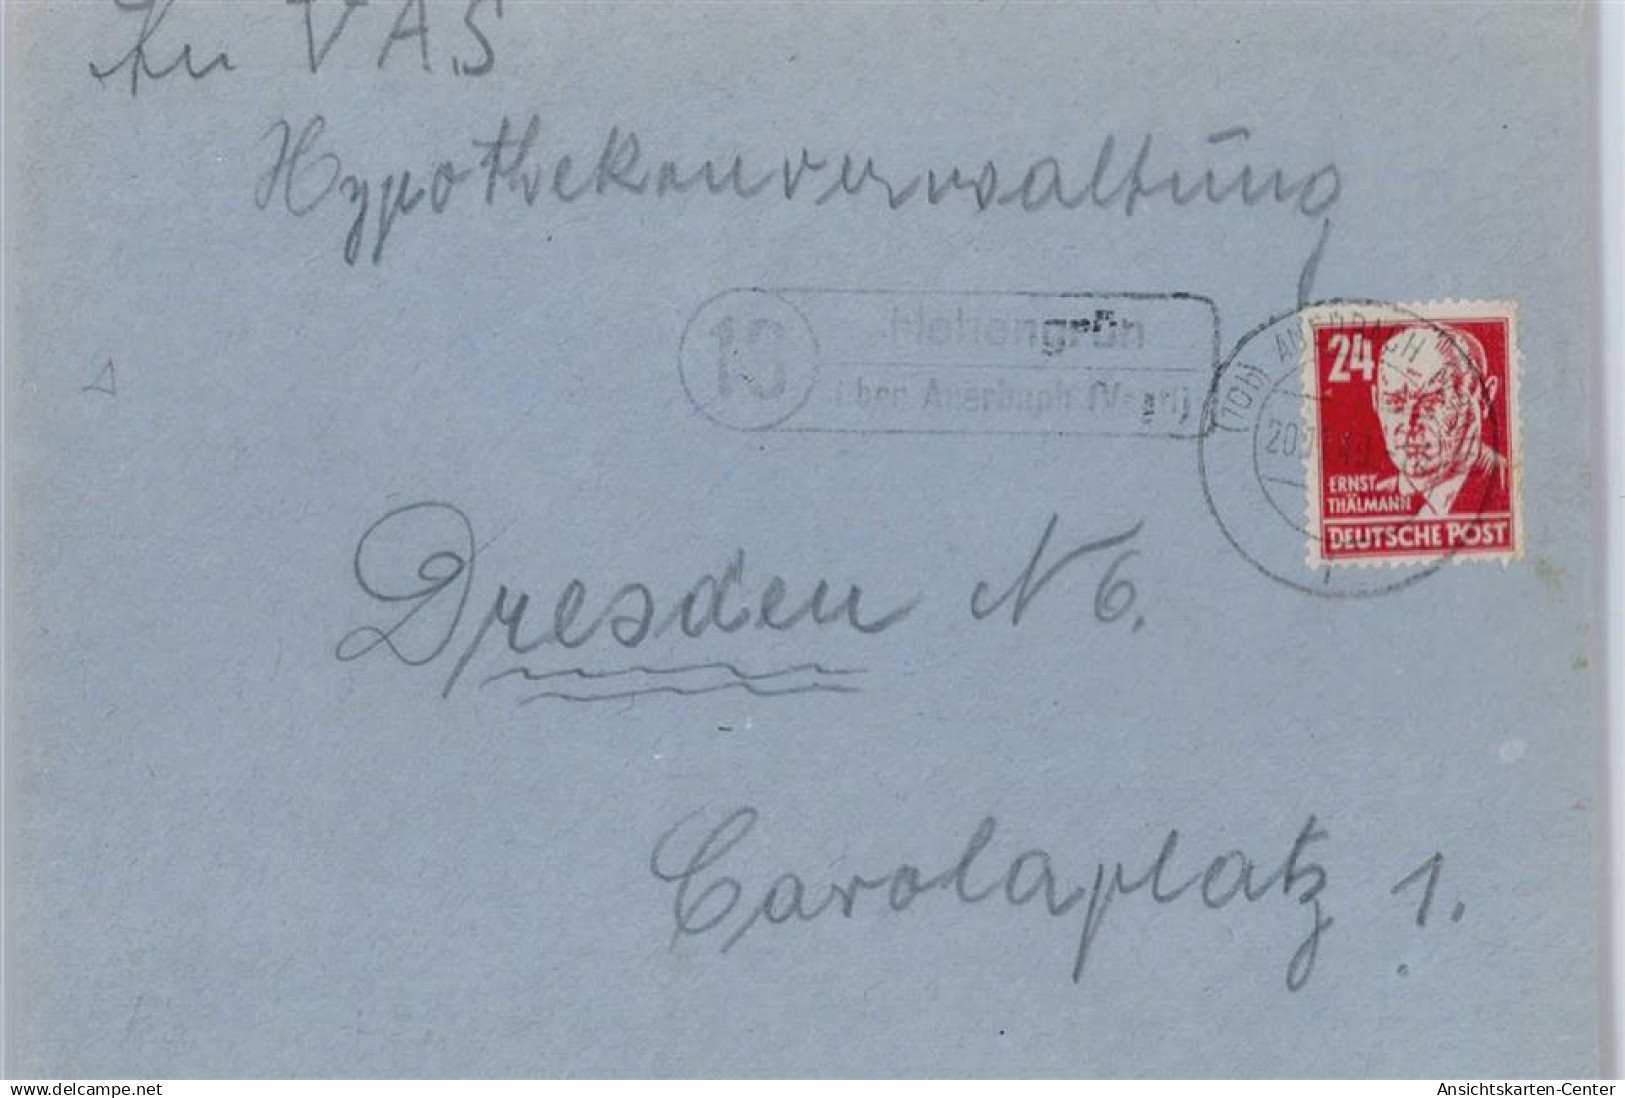 An VAS
Hypothekenverwaltung
10
Hohengrün
über Auerbach (Vogtl)
(10b) AUERBACH
24
ERNST
THÄLMANN
DEUTSCHE POST
Dresden N 6.
Carolaplatz 1.
www.delcampe.net
Ansichtskarten-Center